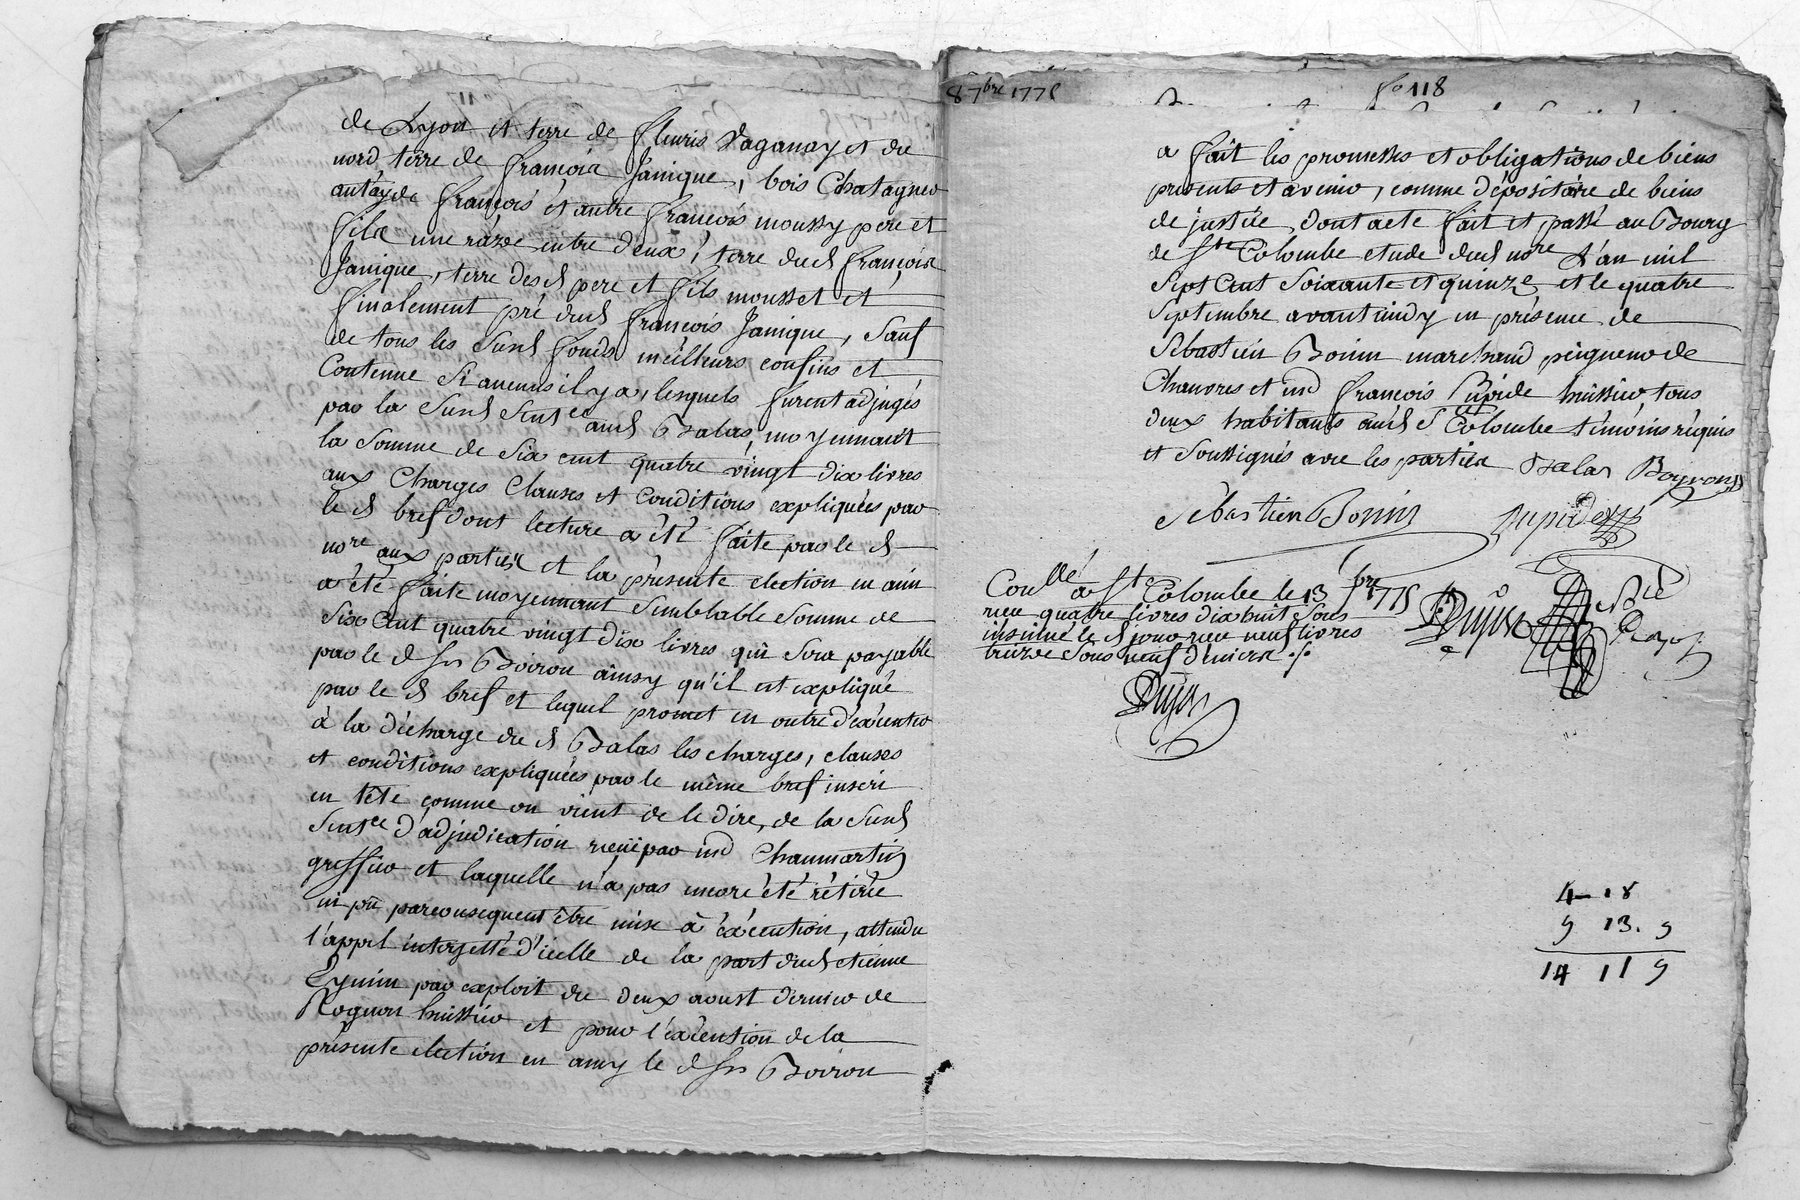 de Lyon et terre de fleuris Daganay et de
nord terre de francois Janique, bois Chatagner
francois et autre francois moussy pere et
fils une raze entre deux, terre dud francois
Janique, terre desd pere et fils mousset et
finalement pré dud francois Janique, Sauf
de tous les Susd fonds meilleurs confins et
Contenue Si aucuns il y a, lesquels furent adjugés
par la Susd Sentce aud Balas, moyennant
la Somme de Six cent quatre vingt dix livres
aux Charges Clauses et Conditions expliquées par
le d bref dont lecture a été faite par le d
nore aux parties et la présente election en ami
a été faite moyennant Semblable Somme de
Six Cent quatre vingt dix livres qui Sera payable
par le d Sr Boiron ainsy qu'il est expliqué
par le d bref et lequel promet en outre d'éxécuter
à la décharge du d Balas les charges, clauses
et conditions expliquées par le même bref inseré
en tête comme on vient de le dire, de la Susd
Sentce d'adjudication reçüe par md Chaumartin
greffier et laquelle n'a pas encore été retirée
ni pu par consequent être mise à éxécution, attendu
l'appel interjetté d'icelle de la part dud etienne
Eymin par exploit du deux aoust dernier de
Rognon huissier et pour l'éxécution de la
présente election en amy le d Sr Boiron
8 7bre 1775
fo 118
a fait les promesses et obligations de biens
presents et avenir, comme dépositaire de biens
de justice, dont acte fait et passé au Bourg
de Ste Colombe etude dud nore L'an mil
Sept Cent Soixante et quinze et le quatre
Septembre avant midy en présence de
Sebastien Bonin marchand peigneur de
Chanvres et md francois Lupide huissier, tous
deux habitants aud Ste Colombe témoins réquis
et Soussignés avec les parties Balas Boyron
Sébastien Bonin Lupide
Conllé à Ste Colombe le 13 7bre 1775
reçu quatre livres dix huit Sols
insinué le d jour reçu neuf livres
treize Sous neuf déniers ./.
Dujon
Dujon
4 - 18
9 13. 9
14 11 9